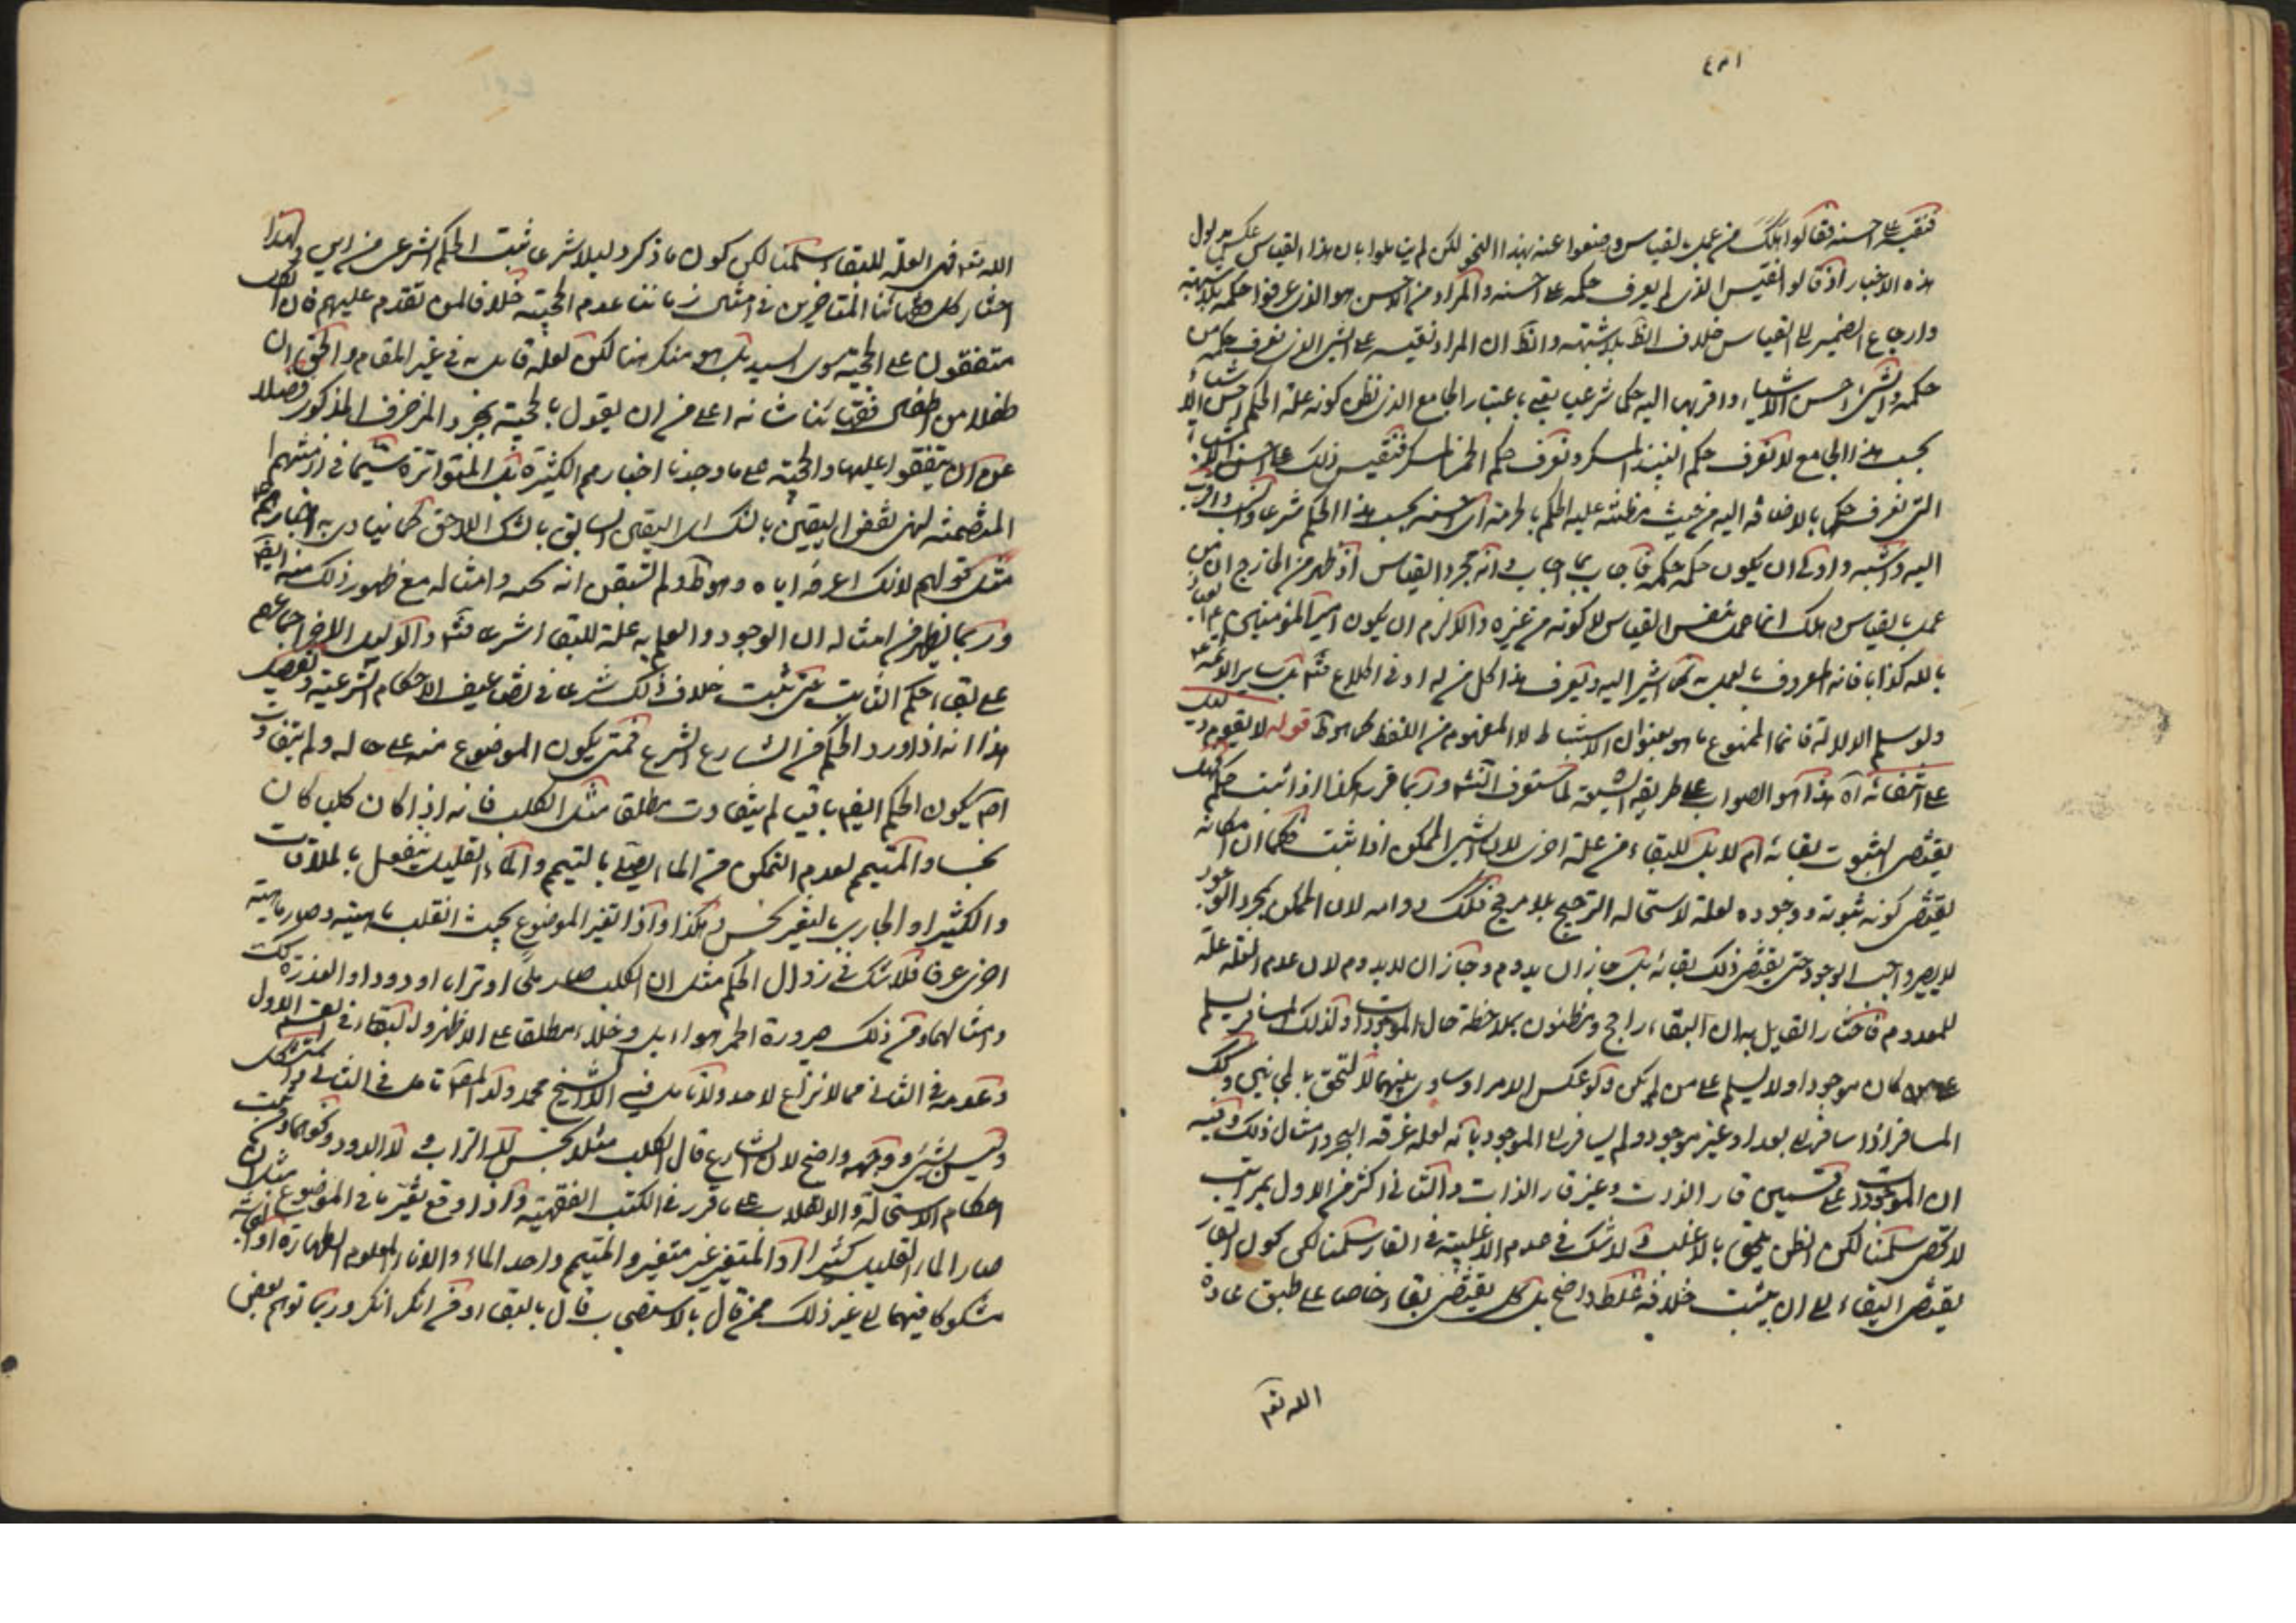 فنقيسه على احسنه فقالوا هلك من عمل بالقياس ومنعوا عنه بهذا النحو لكن لم يناملوا بان هذا القياس عكس مدلول
هذه الاخبار اذ قالوا نقيس الذي لم يعرف حكمه على احسنه والمراد من الاحسن هو الذي عرفوا حكمه بلا شبهة
وارجاع الضمير الى القياس خلاف الظ بلا شبهة والظ ان المراد نقيسه على الشئ الذي نعرف حكمه من
حكمه والشئ احسن الاشياء واقربها اليه حكما شرعيا يعني باعتبار الجامع الذي نظن كونه علة الحكم احسن الاشياء
بحسب هذا الجامع لا نعرف حكم النبيذ المسكر ونعرف حكم الخمر المسكر فنقيس ذلك على احسن الاشياء
التي نعرف حكمها بالاضافة اليه من حيث مظنته عليه الحكم بالحرمة اي احسنه بحسب هذا الحكم شرعا وانسب واقرب
اليه واشبه واولى ان يكون حكمه حكمه فاجاب بما اجاب وانه مجرد القياس اذ ظهر من الخارج ان من
عمل بالقياس وهلك انما عمل بنفس القياس لا كونه من غيره والا لزم ان يكون امير المؤمنين ع
بالله كذابا فانه المعروف بالعمل به كما اشير اليه ويعرف هذا كل من له ادنى اطلاع فتم بل ساير الائمة ع
ولو سلم الدلالة فانما الممنوع ما هو بعنوان الاستنباط لا المفهوم من اللفظ كما هو ظ قوله لا يقوم دليل
على انتفائه اه هذا هو الصواب على طريقة الشيعة لما ستعرف انشه وربما قرر هكذا اذا ثبت حكم فهل
يقتضي الثبوت بقائه ام لا بل للبقاء من علة اخرى لان الشئ الممكن اذا ثبت فكما ان امكانه
يقتضي كونه ثبوته ووجوده لعلة لاستحالة الترجيح بلا مرجح فكذلك دوامه لان الممكن بمجرد الوجود
لا يصير واجب الوجود حتى يقتضي ذلك بقائه بل جاز ان يدوم وجاز ان لا يدوم لان عدم العلة علة
للعدم فاختار القايل به ان البقاء راجح ومظنون بملاحظة حال الموجودات ولذلك المسافر يسلم
على من كان موجودا ولا يسلم على من لم يكن ولو عكس الامر او ساوى بينهما لالتحق بالمجانين وكذلك
المسافر اذا سافر الى بغداد وغير موجود ولم يسافر الى الموجود بانه لعله غرقه البحر وامثال ذلك وفيه
ان الموجودات على قسمين قار الذات وغير قار الذات والثاني اكثر من الاول بمراتب
لا تحصى سلمنا لكن الظن يلحق بالاغلب ولا شك في عدم الاغلبية في القار سلمنا لكن كون القار
يقتضي البقاء الى ان يثبت خلافه غلط واضح بل كل يقتضي بقاء خاصا على طبق عادة
الله تعم
الله تعم فهي العلة للبقاء سلمنا لكن كون ما ذكر دليلا شرعا يثبت الحكم الشرعي من اين ولهذا
اختار كل علمائنا المتاخرين في امثال زماننا عدم الحجية خلافا لمن تقدم عليهم فان الكل
متفقون على الحجية سوى السيد بل هو منكر هنا لكن لعله قايل به في غير المقام والحق ان
طفلا من اطفال فقهائنا شانه اعلى من ان يقول بالحجية بمجرد المزخرف المذكور فضلا
عن ان يتفقوا عليها والحجية على ما وجدنا اخبارهم الكثيرة بل المتواترة سيما في ازمنتهم
المتضمنة لهى نقض اليقين بالشك اى اليقين السابق بالشك اللاحق كما ينادى به اخبارهم
مثل قولهم لانك اعرفه اياه وهو ظ ولم تستيقن انه نجسه وامثاله مع ظهور ذلك منه ايضا
وربما يظهر من امثاله ان الوجود والعلم به علة للبقاء اشرنا فتم والدليل الاخر اجماعهم
على بقاء الحكم الثابت حتى يثبت خلاف ذلك شرعا في تضاعيف الاحكام الشرعية وتفصيل
هذا انه اذا ورد الحكم من الشارع الشرع فمتى يكون الموضوع منه على حاله ولم يتفاوت
اصم يكون الحكم ايضا باقيا لم يتفاوت مطلقا مثل الكلب فانه اذا كان كلبا كان
نجسا والمتيمم لعدم التمكن من الماء يصلى بالتيمم والماء القليل ينفعل بالملاقات
والكثير او الجاري بالتغير نجس وهكذا واذا تغير الموضوع بحيث انقلب ماهيته وصار ماهية
اخرى عرفا فلا شك في زوال الحكم مثل ان الكلب صار ملحا او ترابا او دودا او العذرة كك
وامثالهما ومن ذلك صيرورة الخمر هوا بل وخلا مطلقا على الاظهر والبقاء في القسم الاول
وعدمه في الثاني مما لا نزاع لاحد ولا تامل فيه الا الشيخ محمد ولد المص تامل في الثاني واستشكل
وليس بشئ ووجهه واضح لان الشارع قال الكلب مثلا نجس لا التراب ولا الدود ونحوهما وتحت
احكام الاستحالة والانقلاب على ما قرر في الكتب الفقهية واذا وقع تغير ما في الموضوع مثل ان
صار الماء القليل كثيرا او المتغير غير متغير والمتيمم واجد الماء والاناء المعلوم الطهارة او النجاسة
مشكوكا فيهما الى غير ذلك فمن قال بالاستصحاب قال بالبقاء ومن انكر انكر وربما توهم بعض